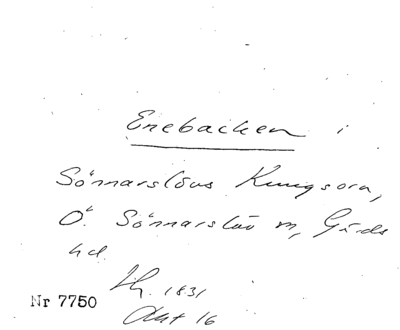 Enebacken i
Sönnarslövs Kungsora,
Ö. Sönnarslöv m, Gärds
hd.
Lh. 1831
Akt 16
Nr 7750